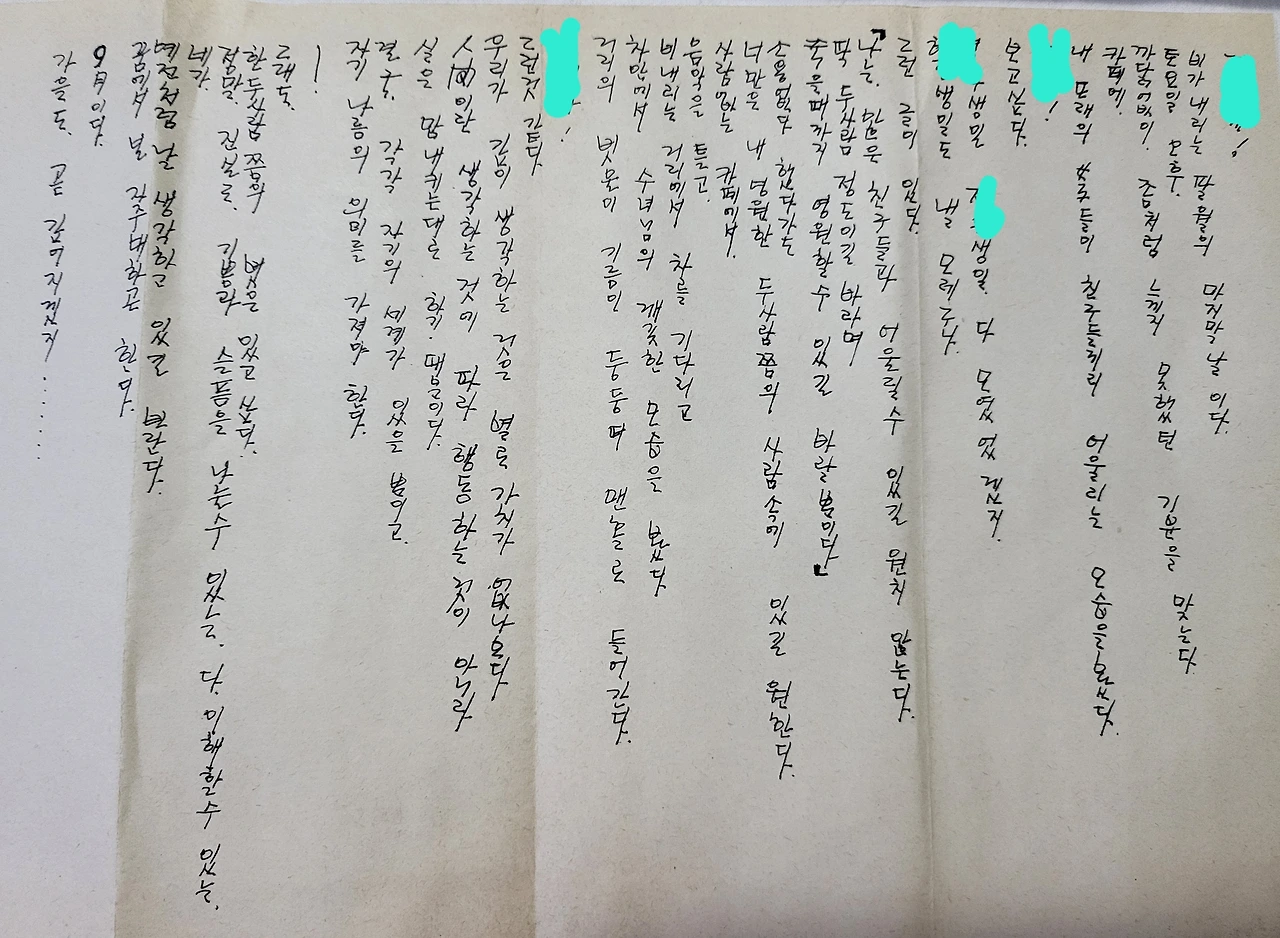 !
비가 내리는 팔월의 마지막 날 이다.
토요일 오후.
까닭없이. 좀처럼 느끼지 못했던 기운을 맞는다
카페에.
내 또래의 친구들끼리 어울리는 모습을 봤다.
!
보고싶다.
생일 생일. 다 모였 었 겠지.
생일도 낼 모레구나.
그런 글이 있다.
「나는. 많은 친구들과 어울릴수 있길 원치 않는다.
딱 두사람 정도이길 바라며
죽을때까지 영원할수 있길 바랄 뿐이다」
소용없다 했다가는
너만은 내 영원한 두사람쯤의 사람속에 있길 원한다.
사람없는 카페에서.
음악을 듣고.
비내리는 거리에서 차를 기다리고
차안에서 수녀님의 깨끗한 모습을 봤다
거리의 빗물이 기름이 둥둥떠 맨홀로 들어간다.
!
그런것 같다
우리가 깊이 생각하는 것은 별로 가치가 없나보다.
사람이란 생각하는 것에 따라 행동하는 것이 아니라
실은 맘내키는대로 하기 때문이다.
결국. 각각 자기의 세계가 있을 뿐이고.
각기 나름의 의미를 가져야 한다.
!
그래도.
한두사람 쯤의 벗은 있고 싶다.
정말. 진실로. 기쁨과 슬픔을 나눌수 있는. 다. 이해할수 있는.
네가.
예전처럼 날 생각하고 있길 바란다.
꿈에서 널 자주대하곤 한다.
9月이다.
가을도. 곧 깊어지겠지......